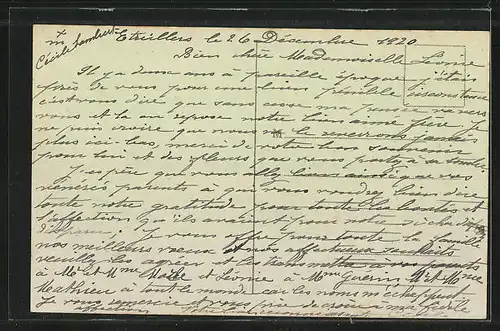 Etreillers le 26 Décembre 1920
Cécile Lambert
Bien chère Mademoiselle Léonie
Il y a deux ans à pareille époque j'étais
près de vous pour une bien pénible circonstance
c'est vous dire que sans cesse ma pensée va vers
vous et là où repose notre bien aimé frère je
ne puis croire que nous ne le reverrons jamais
plus ici bas, merci de votre bon souvenir
pour lui et des fleurs que vous
J'espère que vous
vénérés parents à qui vous voudrez bien dire
toute notre gratitude pour toutes les bontés et
l'affection qu'ils avaient pour notre si cher
je vous offre pour toute la famille
nos meilleurs voeux et nos affectueux souhaits
veuillez les agréer et les transmettre
à Mr et Mme et Léonie à Mme Guérin, Mr et Mme
Mathieu à tout le monde car les noms m'échappent
Je vous remercie et vous prie de croire à ma fidèle
affection